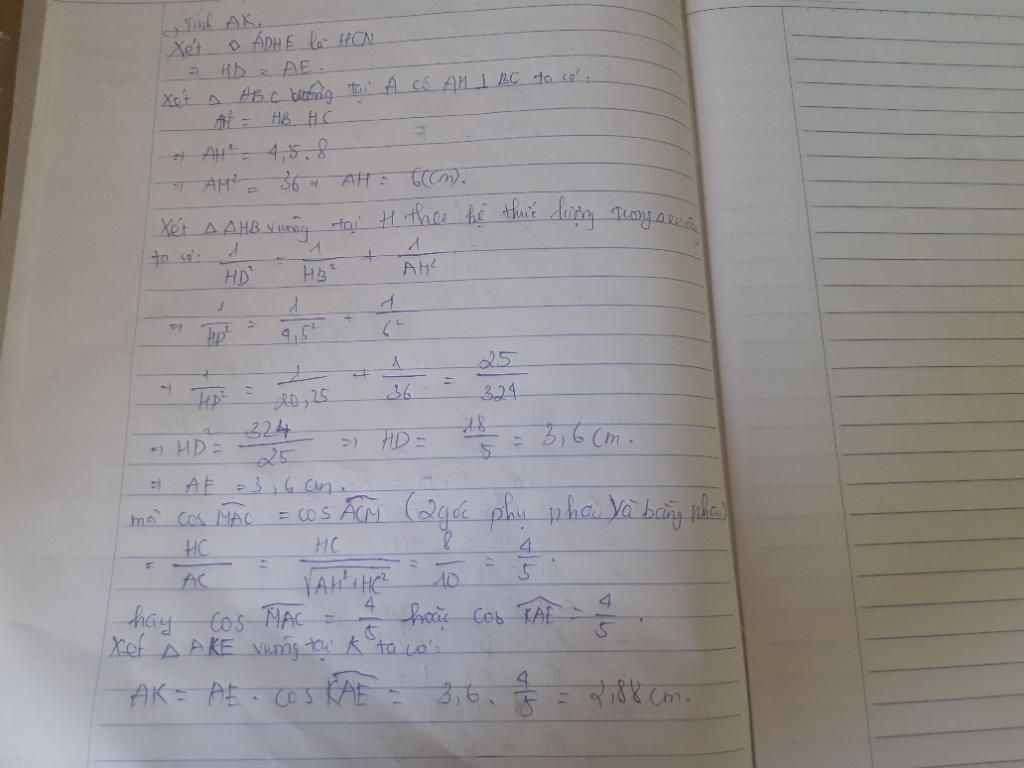 c, Tính AK.
Xét ◊ ADHE là HCN
⇒ HD = AE.
Xét △ ABC vuông tại A có AH ⊥ BC ta có:
AH² = HB HC
⇒ AH² = 4,5.8
⇒ AH² = 36 ⇒ AH = 6(cm).
Xét △ AHB vuông tại H theo hệ thức lượng trong △ vuông
ta có: 1/HD² = 1/HB² + 1/AH²
⇒ 1/HD² = 1/4,5² + 1/6²
⇒ 1/HD² = 1/20,25 + 1/36 = 25/324
⇒ HD² = 324/25 ⇒ HD = 18/5 = 3,6 cm.
⇒ AE = 3,6 cm.
mà cos MAC = cos ACM (2 góc phụ nhau và bằng nhau)
= HC/AC = HC/√(AH²+HC²) = 8/10 = 4/5.
hay cos MAC = 4/5 hoặc cos KAE = 4/5.
Xét △ AKE vuông tại K ta có:
AK = AE . cos KAE = 3,6 . 4/5 = 2,88 cm.